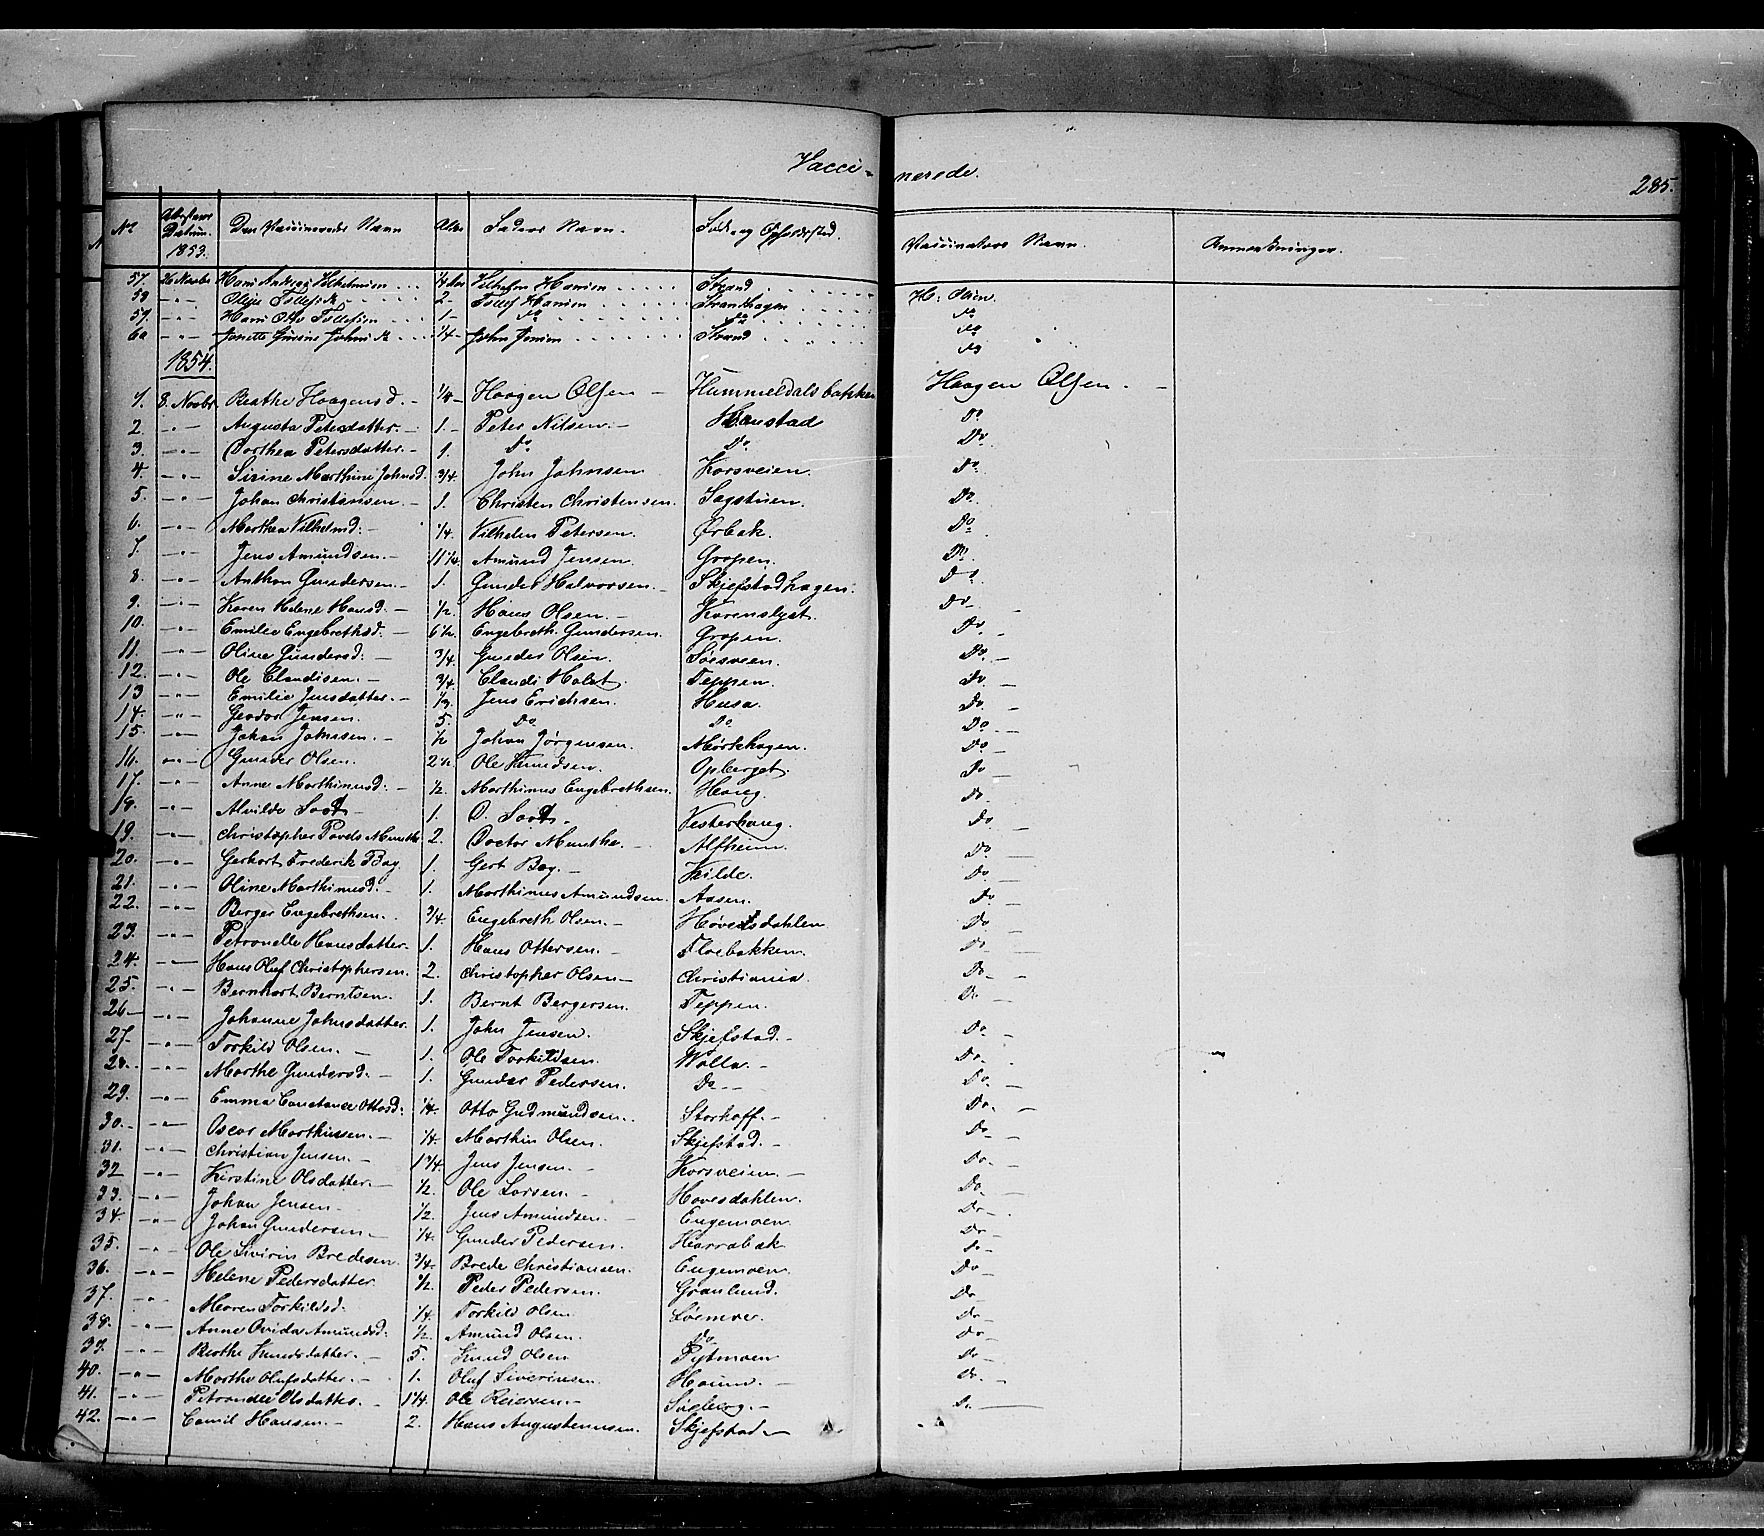 Vacci- nerede. 285.
No Attestens Datum. 1853. Den Vaccineredes Navn Alder Faders Navn. Føde og Opholdssted. Vaccinateurs Navn. Anmærkninger.
57. 26 Novbr Hans Andreas Vilhelmsen ... 1/4 Vilhelm Hansen .... Strand ..... H: Olsen.
58 -"- Tollefs 2- Tollef Hansen .... Strandhagen Do
59. -"- Hans Tollefsen ... 1- Do Do Do
60 -"- Jonette Johns ... 1/4- John Jensen Strand Do
1854.
1. 8. Novbr. Berthe Haagensd. - 1/4- Haagen Olsen - Hummeldalsbakken Haagen Olsen. -
2. -"- Augusta Petersdatter. - 1.- Peter Nilsen. - Haustad Do
3. -"- Dorthea Petersdatter. - 1. Do Do Do
4. -"- Sirine Marthine Johnsd. 3/4. John Johnsen Korsveien. Do
5. -"- Johan Christensen. - 1. Christen Christensen. Sagstuen. Do
6. -"- Marthea Vilhelmd. - 1/4. Vilhelm Petersen. Ørbek. Do
7. -"- Jens Amundsen. - 11 1/4. Amund Jensen. Gropen. Do
8. -"- Anthon Gundersen. - 1. Gunder Halvorsen. - Skjefstadhagen. Do
9. -"- Karen Helene Hansd. - 1/2 Hans Olsen. - Karenslyst. Do -
10. -"- Emilie Engebrethsd. - 6 1/2. Engebreth Gundersen. Gropen. Do -
11. -"- Oline Gundersd. - 3/4. Gunder Olsen. Do -
12. -"- Ole Claudisen. - 3/4. Claudi Holst. Teppen. Do -
13 -"- Emilie Jensdatter. - 1/3. Jens Erichsen. Husa. Do -
14. -"- Jensen. 5. Do Do Do -
15. -"- Johan Johnsen. - 1/2 Johan Jørgensen. Mørkhagen. Do -
16. -"- Gunder Olsen. 2 1/2. Ole Knudsen. Opberget. Do
17. -"- Anne Marthinusd. - 1/2. Marthinus Engebrethsen. Haug. Do -
18. -"- Alvilde Soot - 1. O. Soot. Vesterhaug. Do -
19. -"- Christopher Munthe 2. Doctor Munthe. - Alfheim. Do -
20. -"- Gerhart Frederik Bøy. 1. Gert Bøy. - Kilde. Do -
21. -"- Oline Marthinusd. - 1. Marthinus Amundsen. Aasen. Do -
22. -"- Berger Engebrethsen. 3/4. Engebreth Olsen. - Høvesdahlen. Do -
23. -"- Petronelle Hansdatter. 1. Hans Ottersen. - Floebakken. Do -
24. -"- Hans Oluf Christophersen. 2. Christopher Olsen. - Christiania. Do -
25. -"- Bernhart Berntsen. 1. Bernt Bergersen. Teppen. Do -
26 -"- Johanne Johnsdatter. 1. John Jensen. Skjefstad. - Do -
27. -"- Torkild Olsen. - 1. Ole Torkildsen. Wolla. - Do -
28. -"- Marthe Gundersd. - 1. Gunder Pedersen. Do - Do -
29. -"- Emma Constance Ottosd. 1/4. Otto Gudmundsen. Storhoff. - Do -
30. -"- Oscar Marthinsen. - 1/4. Marthin Olsen. Skjefstad. - Do -
31. -"- Christian Jensen. - 1 3/4. Jens Jensen. - Korsveien. - Do -
32 -"- Kirstine Olsdatter. - 1/2. Ole Larsen. - Hovesdahlen. Do -
33. -"- Johan Jensen. - 1/2. Jens Amundsen. - Engemoen Do -
34. -"- Johan Gundersen. - 1/4. Gunder Pedersen. Harrabak Do -
35. -"- Ole Sivirin Bredesen. 3/4. Brede Christiansen. Engemoen. Do -
36. -"- Helene Pedersdatter 1/2. Peder Pedersen. Granlund. Do
37. -"- Maren Torkildsd. 1/4. Torkild Olsen Do -
38. -"- Anne Ovida Amundsd. 1/2. Amund Olsen. Do Do -
39. -"- Berthe Knudsdatter. - 5. Knud Olsen Pytmoen Do -
40. -"- Marthe Olufsdatter. - 1. Oluf Siverinsen. - Do -
41. -"- Petronelle Olsdatter. 1 1/4. Ole Reiersen. - Do -
42. -"- Camil Hansen. - 2. Hans Augustinussen. Skjefstad. -